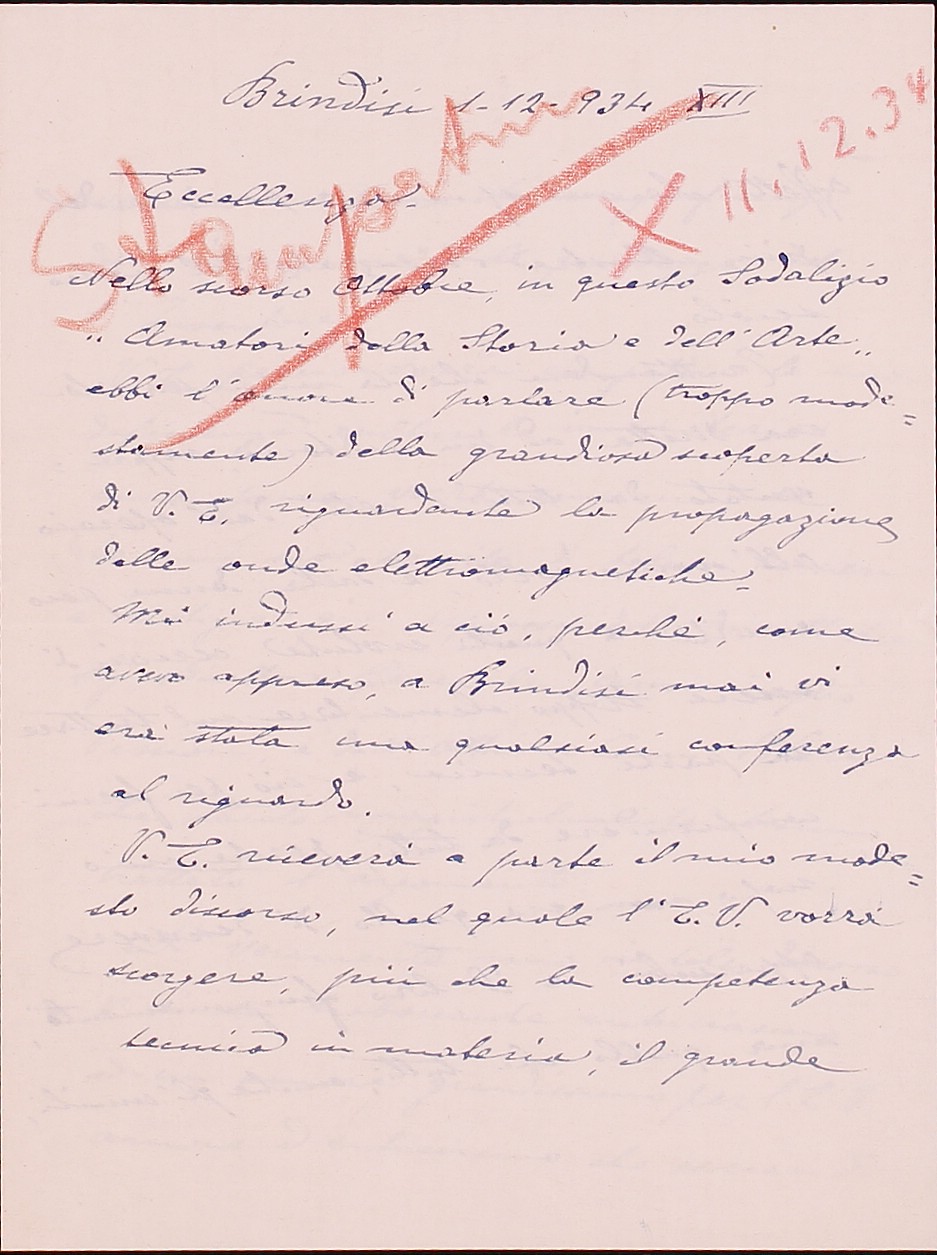 Brindisi 1-12-934 XIII
11.12.34
X
Eccellenza.
Nello scorso Ottobre, in questo Sodalizio
„ Amatori della Storia e dell'Arte „
ebbi l'onore di parlare (troppo mode=
stamente) della grandiosa scoperta
di V. E. riguardante la propagazione
delle onde elettromagnetiche.
Mi indussi a ciò, perché, come
avevo appreso, a Brindisi mai vi
era stata una qualsiasi conferenza
al riguardo.
V. E. riceverà a parte il mio mode=
sto discorso, nel quale l'E. V. vorrà
scorgere, più che la competenza
tecnica in materia, il grande